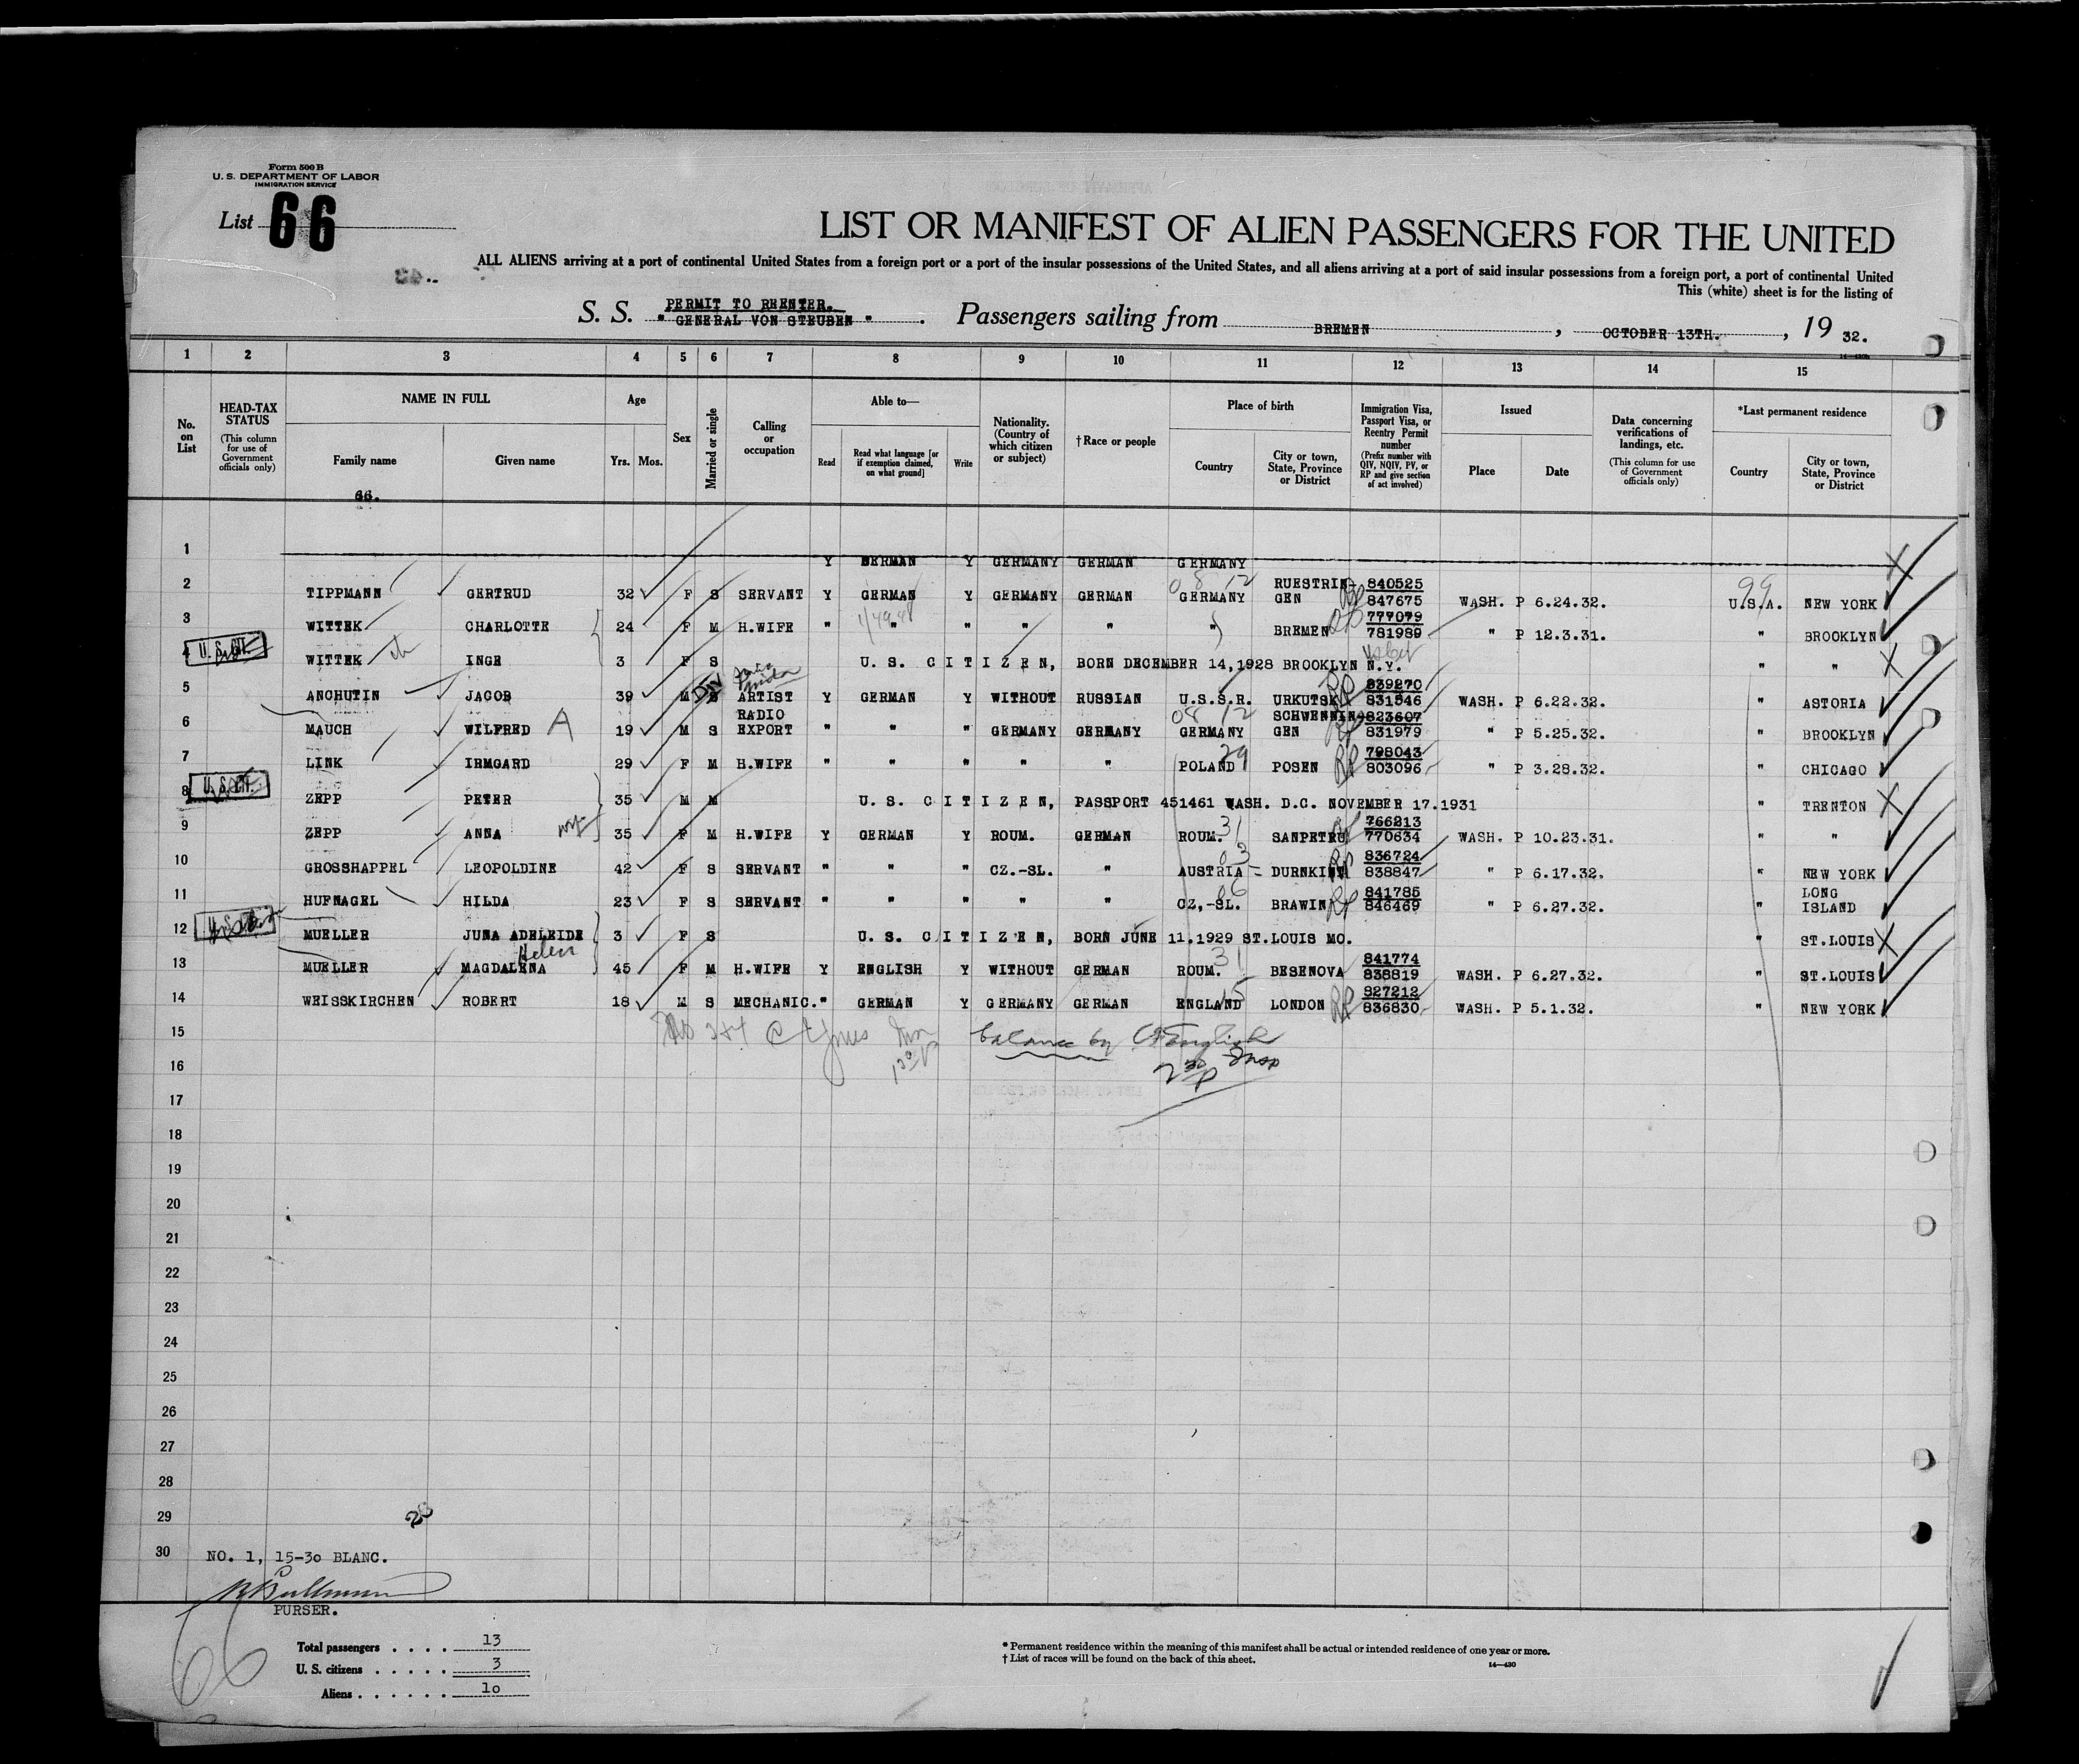 Form 500 B
U. S. DEPARTMENT OF LABOR
IMMIGRATION SERVICE
List 66
LIST OR MANIFEST OF ALIEN PASSENGERS FOR THE UNITED
ALL ALIENS arriving at a port of continental United States from a foreign port or a port of the insular possessions of the United States, and all aliens arriving at a port of said insular possessions from a foreign port, a port of continental United
This (white) sheet is for the listing of
PERMIT TO REENTER.
S. S. " GENERAL VON STEUBEN ". Passengers sailing from BREMEN, OCTOBER 13TH., 19 32.
1 2 3 4 5 6 7 8 9 10 11 12 13 14 15
No. on List
HEAD-TAX STATUS (This column for use of Government officials only)
NAME IN FULL
Family name
Given name
Age
Yrs. Mos.
Sex
Married or single
Calling or occupation
Able to—
Read
Read what language [or if exemption claimed, on what ground]
Write
Nationality. (Country of which citizen or subject)
†Race or people
Place of birth
Country
City or town, State, Province or District
Immigration Visa, Passport Visa, or Reentry Permit number (Prefix number with QIV, NQIV, PV, or RP and give section of act involved)
Issued
Place
Date
Data concerning verifications of landings, etc. (This column for use of Government officials only)
*Last permanent residence
Country
City or town, State, Province or District
66.
1 Y GERMAN Y GERMANY GERMAN GERMANY
2 TIPPMANN GERTRUD 32 F S SERVANT Y GERMAN Y GERMANY GERMAN GERMANY 08 12 RUESTRIN-GEN RP 840525 847675 WASH. P 6.24.32. U.S.A. 99 NEW YORK
3 WITTEK CHARLOTTE 24 F M H.WIFE " " " " " " BREMEN RP 777079 781989 " P 12.3.31. " BROOKLYN
4 U. S. CIT. WITTEK INGE 3 F S U. S. CITIZEN, BORN DECEMBER 14,1928 BROOKLYN N.Y. " "
5 ANCHUTIN JACOB 39 M S Div ARTIST Y GERMAN Y WITHOUT RUSSIAN U.S.S.R. URKUTSK RP 839270 831546 WASH. P 6.22.32. " ASTORIA
6 MAUCH WILFRED A 19 M S RADIO EXPORT " " " GERMANY GERMANY GERMANY 08 12 SCHWENNIN-GEN RP 823607 831979 " P 5.25.32. " BROOKLYN
7 LINK IRMGARD 29 F M H.WIFE " " " " " POLAND 29 POSEN RP 798043 803096 " P 3.28.32. " CHICAGO
8 U. S. CIT. ZEPP PETER 35 M M U. S. CITIZEN, PASSPORT 451461 WASH. D.C. NOVEMBER 17.1931 " TRENTON
9 ZEPP ANNA wf 35 F M H.WIFE Y GERMAN Y ROUM. GERMAN ROUM. 31 SANPETRU RP 766213 770634 WASH. P 10.23.31. " "
10 GROSSHAPPEL LEOPOLDINE 42 F S SERVANT " " " CZ.-SL. " AUSTRIA 03 DURNKIUT RP 836724 838847 " P 6.17.32. " NEW YORK
11 HUFNAGEL HILDA 23 F S SERVANT " " " " " CZ,-SL. 06 BRAWIN RP 841785 846469 " P 6.27.32. " LONG ISLAND
12 MUELLER JUNA ADELEIDE 3 F S U. S. CITIZEN, BORN JUNE 11.1929 ST.LOUIS MO. " ST.LOUIS
13 MUELLER MAGDALENA Helen 45 F M H.WIFE Y ENGLISH Y WITHOUT GERMAN ROUM. 31 BESENOVA 841774 838819 WASH. P 6.27.32. " ST.LOUIS
14 WEISSKIRCHEN ROBERT 18 M S MECHANIC. " GERMAN Y GERMANY GERMAN ENGLAND 15 LONDON RP 827212 836830 WASH. P 5.1.32. " NEW YORK
15 balance by
Insp
16
17
18
19
20
21
22
23
24
25
26
27
28
29
30 NO. 1, 15-30 BLANC.
PURSER.
66
Total passengers . . . . 13
U. S. citizens . . . . . 3
Aliens . . . . . . 10
* Permanent residence within the meaning of this manifest shall be actual or intended residence of one year or more.
† List of races will be found on the back of this sheet.
14—430